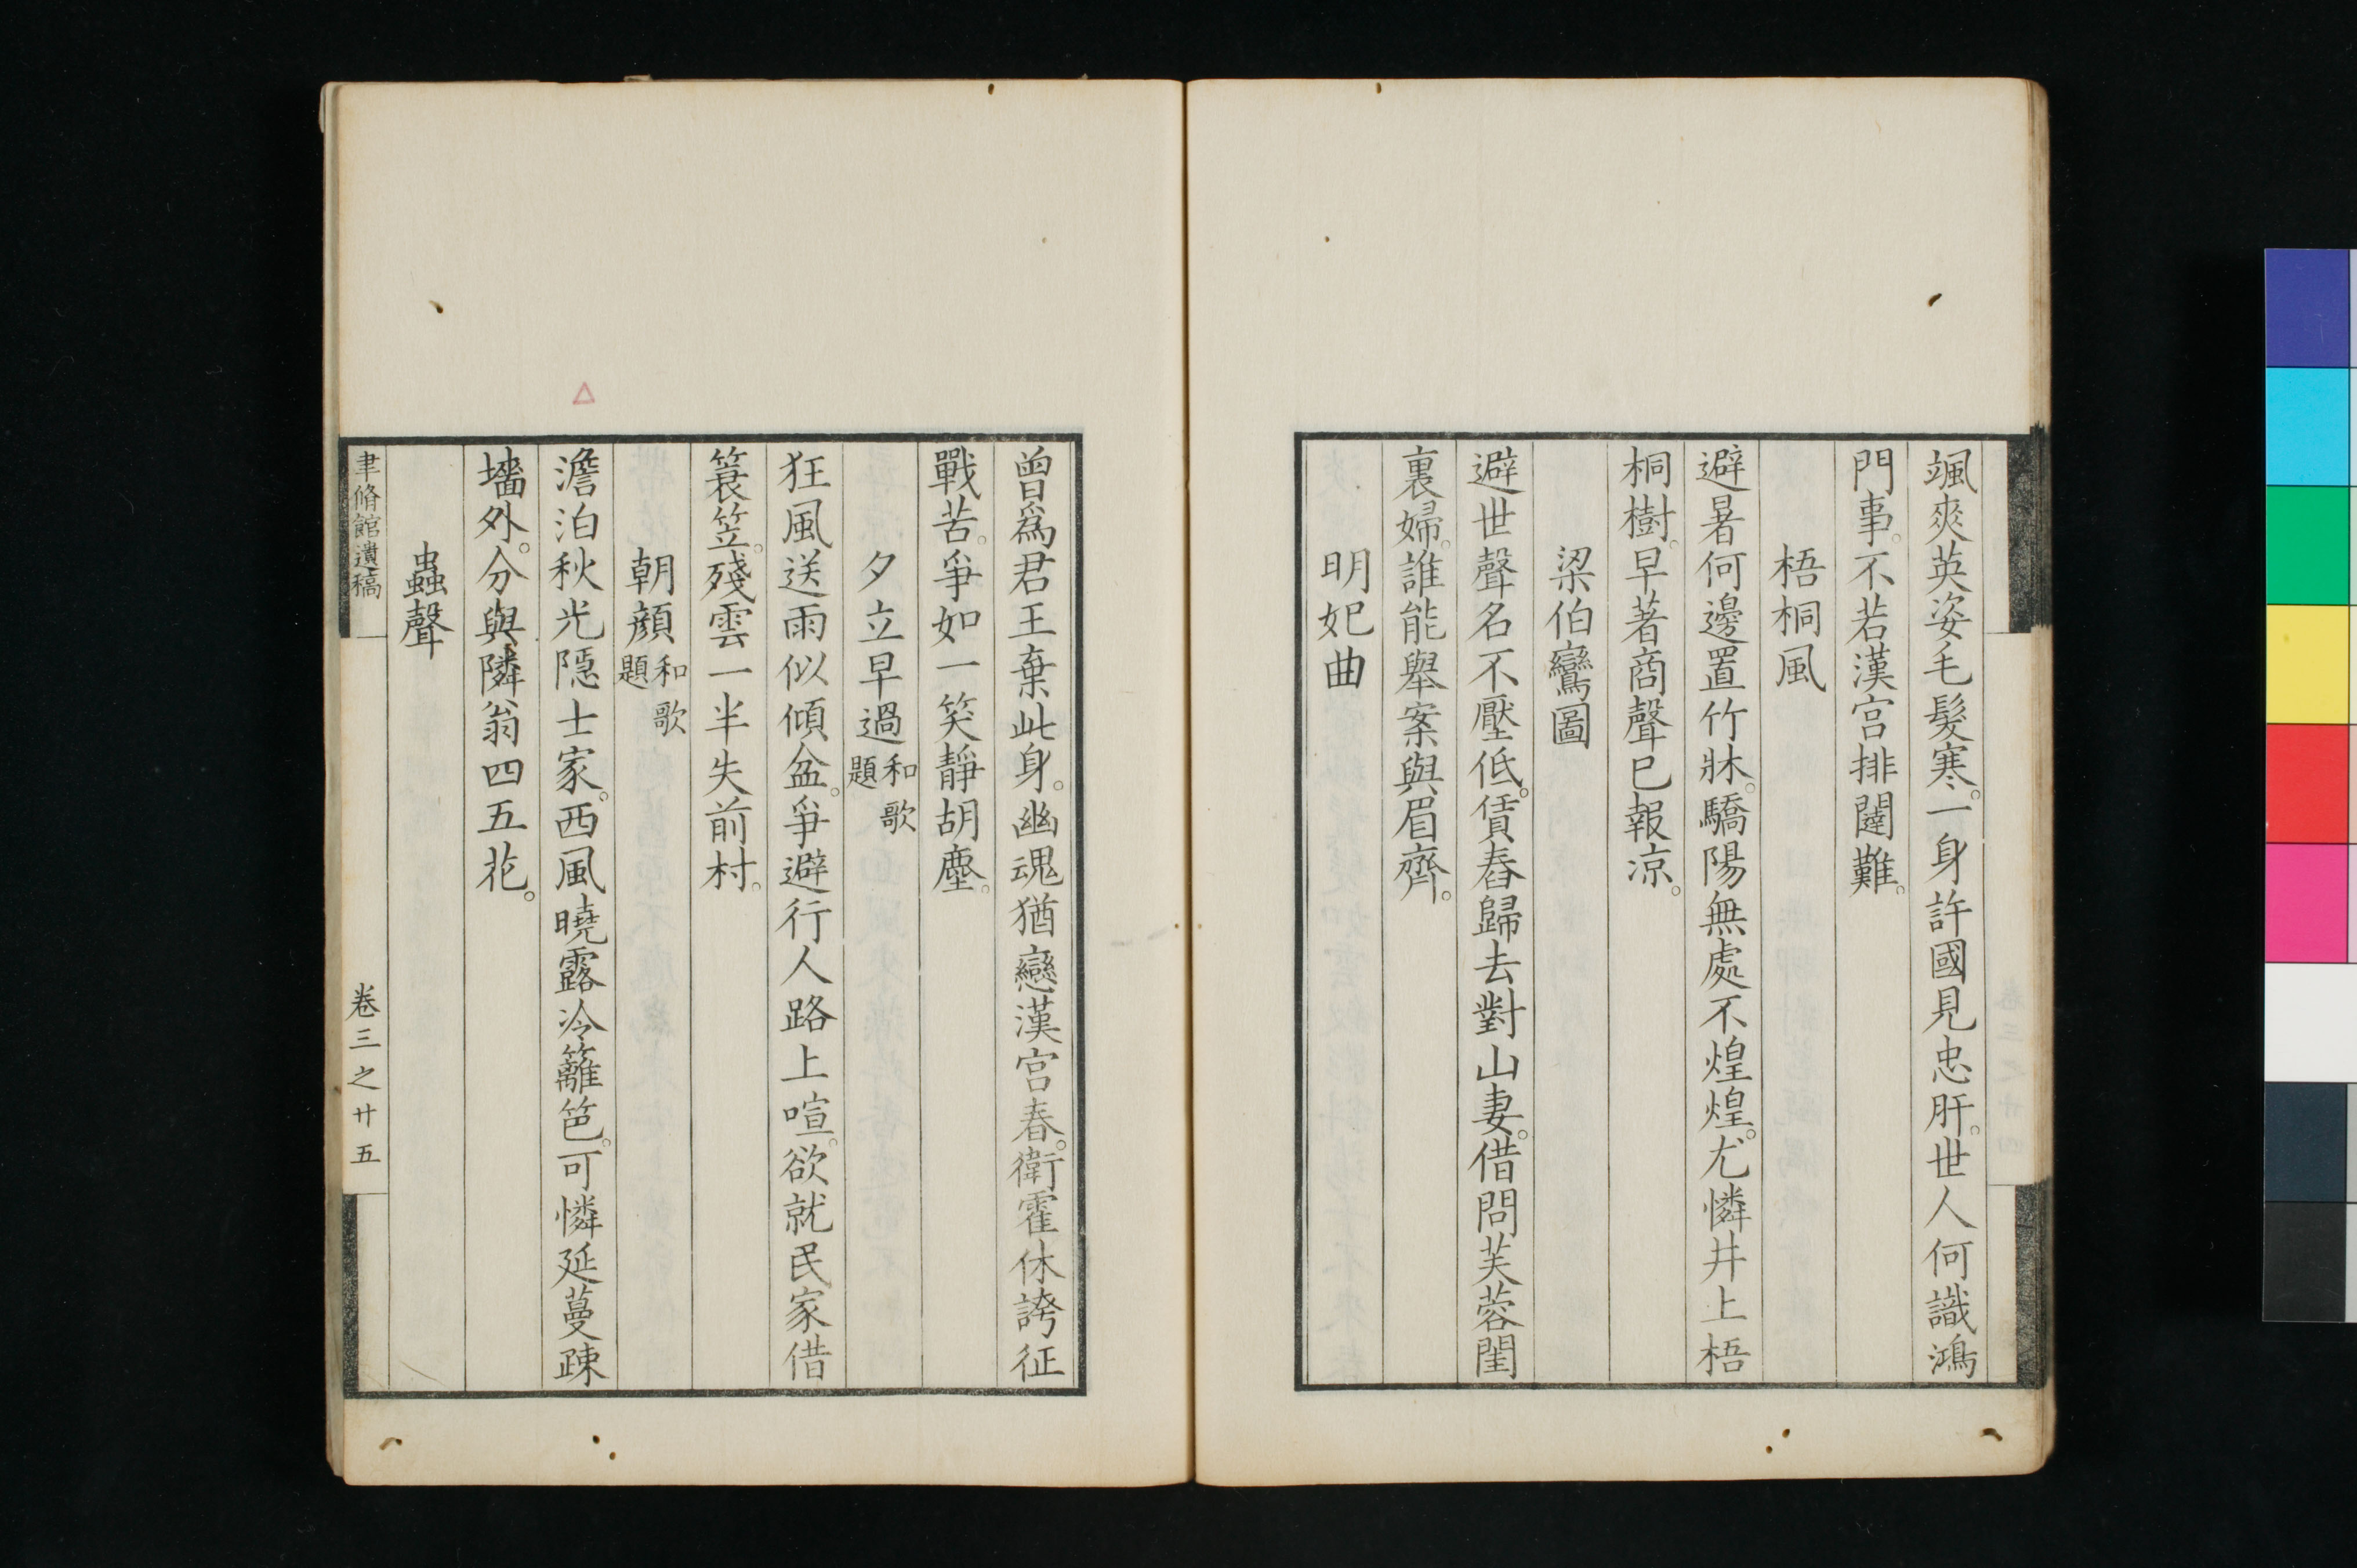 颯爽英姿毛髮寒。一身許國見忠肝。世人何識鴻
門事。不若漢宮排闥難。
梧桐風
避暑何邊置竹牀。驕陽無處不煌煌。尤憐井上梧
桐樹。早著商聲已報凉。
梁伯鸞圖
避世聲名不壓低。賃舂歸去對山妻。借問芙蓉閨
裏婦。誰能舉案與眉齊。
明妃曲
曾爲君王棄此身。幽魂猶戀漢宮春。衛霍休誇征
戰苦。爭如一笑靜胡塵。
夕立早過和歌題
狂風送雨似傾盆。爭避行人路上喧。欲就民家借
簑笠。殘雲一半失前村。
朝顔和歌題
澹泊秋光隱士家。西風曉露冷籬笆。可憐延蔓疎
墻外。分與隣翁四五花。
蟲聲
聿脩館遺稿
卷三之廿五